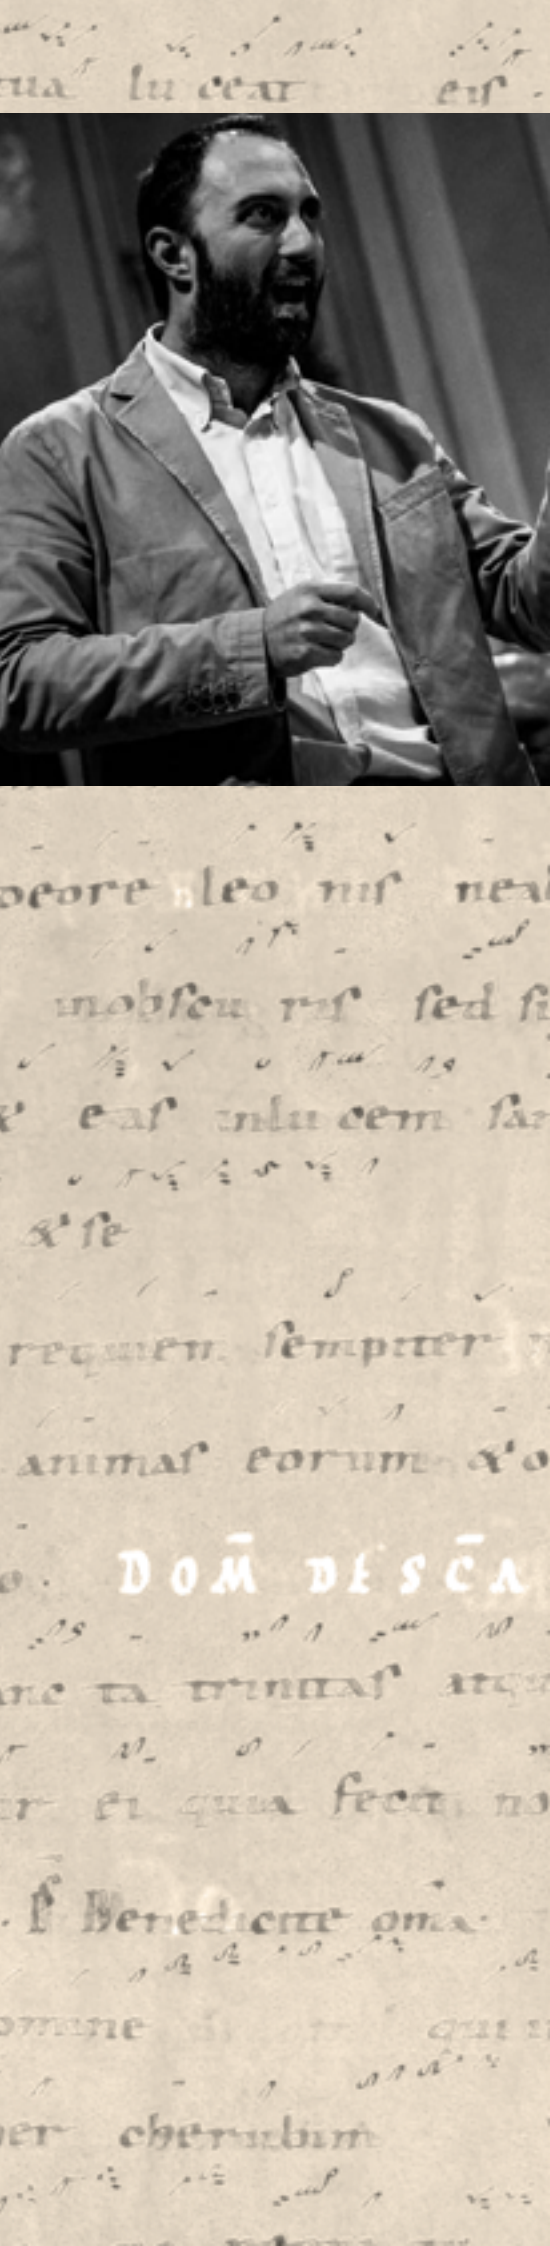 tua luceat eis.
deore leonis nea
inobscuris sed si
& eas inlucem san
& se
requiem sempiter n
animas eorum & o
o. DOM DESCA
anc ta trinitas atqu
ur ei quia fecit no
Benedicite oma
omine qui
per cherubim